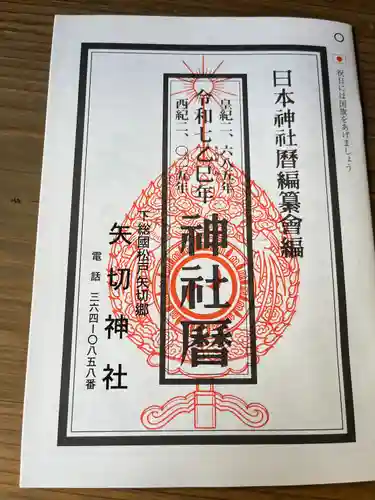 祝日には国旗をあげましょう
日本神社暦編纂會編
皇紀二、六八五年
令和七乙巳年
西紀二、〇二五年
神社暦
下総國松戸矢切郷
矢切神社
電話 三六四ー〇八五八番